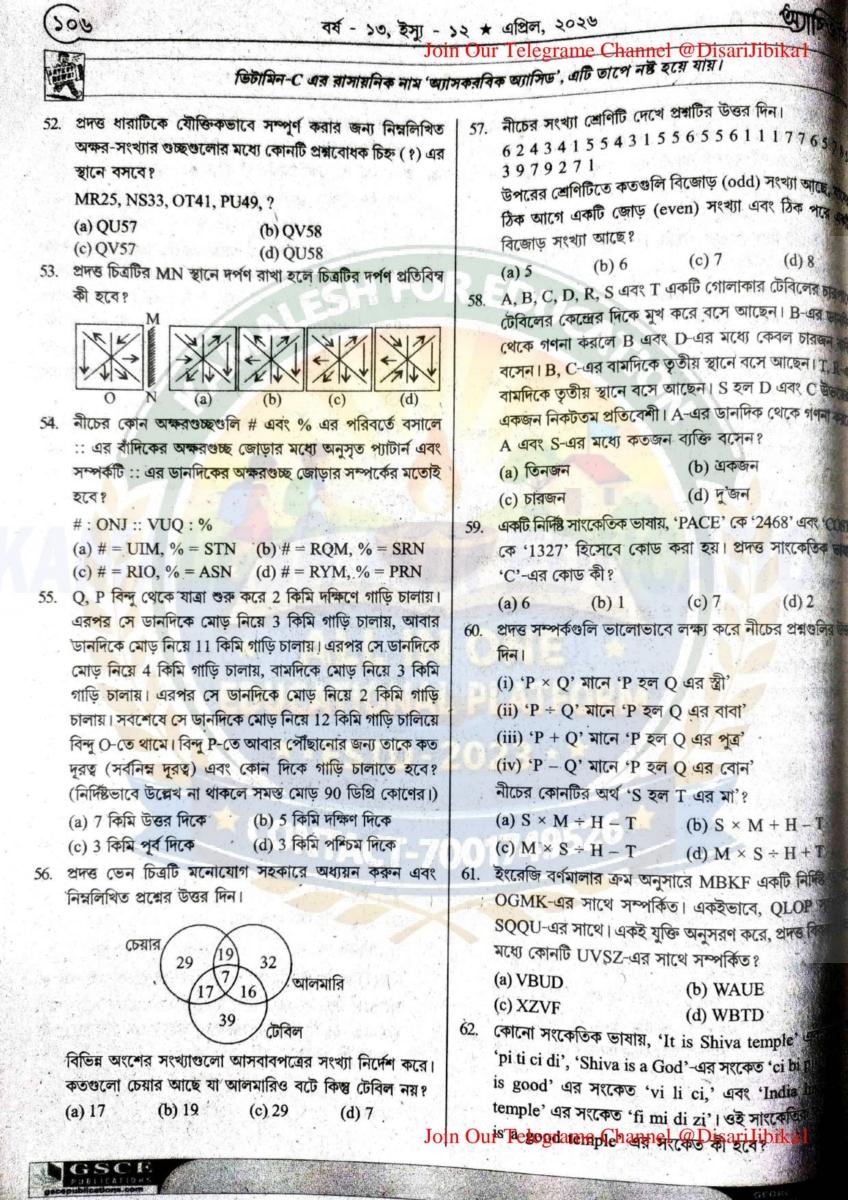 ১০৬
বর্ষ - ১৩, ইস্যু - ১২ ★ এপ্রিল, ২০২৬
Join Our Telegrame Channel @DisariJibika1
ভিটামিন-C এর রাসায়নিক নাম 'অ্যাসকরবিক অ্যাসিড', এটি তাপে নষ্ট হয়ে যায়।
52. প্রদত্ত ধারাটিকে যৌক্তিকভাবে সম্পূর্ণ করার জন্য নিম্নলিখিত
অক্ষর-সংখ্যার গুচ্ছগুলোর মধ্যে কোনটি প্রশ্নবোধক চিহ্ন (?) এর
স্থানে বসবে?
MR25, NS33, OT41, PU49, ?
(a) QU57 (b) QV58
(c) QV57 (d) QU58
53. প্রদত্ত চিত্রটির MN স্থানে দর্পণ রাখা হলে চিত্রটির দর্পণ প্রতিবিম্ব
কী হবে?
M
O N (a) (b) (c) (d)
54. নীচের কোন অক্ষরগুচ্ছগুলি # এবং % এর পরিবর্তে বসালে
:: এর বাঁদিকের অক্ষরগুচ্ছ জোড়ার মধ্যে অনুসৃত প্যাটার্ন এবং
সম্পর্কটি :: এর ডানদিকের অক্ষরগুচ্ছ জোড়ার সম্পর্কের মতোই
হবে?
# : ONJ :: VUQ : %
(a) # = UIM, % = STN (b) # = RQM, % = SRN
(c) # = RIO, % = ASN (d) # = RYM, % = PRN
55. Q, P বিন্দু থেকে যাত্রা শুরু করে 2 কিমি দক্ষিণে গাড়ি চালায়।
এরপর সে ডানদিকে মোড় নিয়ে 3 কিমি গাড়ি চালায়, আবার
ডানদিকে মোড় নিয়ে 11 কিমি গাড়ি চালায়। এরপর সে ডানদিকে
মোড় নিয়ে 4 কিমি গাড়ি চালায়, বামদিকে মোড় নিয়ে 3 কিমি
গাড়ি চালায়। এরপর সে ডানদিকে মোড় নিয়ে 2 কিমি গাড়ি
চালায়। সবশেষে সে ডানদিকে মোড় নিয়ে 12 কিমি গাড়ি চালিয়ে
বিন্দু O-তে থামে। বিন্দু P-তে আবার পৌঁছানোর জন্য তাকে কত
দূরত্ব (সর্বনিম্ন দূরত্ব) এবং কোন দিকে গাড়ি চালাতে হবে?
(নির্দিষ্টভাবে উল্লেখ না থাকলে সমস্ত মোড় 90 ডিগ্রি কোণের।)
(a) 7 কিমি উত্তর দিকে (b) 5 কিমি দক্ষিণ দিকে
(c) 3 কিমি পূর্ব দিকে (d) 3 কিমি পশ্চিম দিকে
56. প্রদত্ত ভেন চিত্রটি মনোযোগ সহকারে অধ্যয়ন করুন এবং
নিম্নলিখিত প্রশ্নের উত্তর দিন।
চেয়ার
29 19 32
7
17 16
আলমারি
39
টেবিল
বিভিন্ন অংশের সংখ্যাগুলো আসবাবপত্রের সংখ্যা নির্দেশ করে।
কতগুলো চেয়ার আছে যা আলমারিও বটে কিন্তু টেবিল নয়?
(a) 17 (b) 19 (c) 29 (d) 7
GSCE
PUBLICATIONS
gscepublications.com
57. নীচের সংখ্যা শ্রেণিটি দেখে প্রশ্নটির উত্তর দিন।
6 2 4 3 4 1 5 5 4 3 1 5 5 6 5 5 6 1 1 1 7 7 6 5
3 9 7 9 2 7 1
উপরের শ্রেণিটিতে কতগুলি বিজোড় (odd) সংখ্যা আছে,
ঠিক আগে একটি জোড় (even) সংখ্যা এবং ঠিক পরে
বিজোড় সংখ্যা আছে?
(a) 5 (b) 6 (c) 7 (d) 8
58. A, B, C, D, R, S এবং T একটি গোলাকার টেবিলের
টেবিলের কেন্দ্রের দিকে মুখ করে বসে আছেন। B-এর
থেকে গণনা করলে B এবং D-এর মধ্যে কেবল চারজন
বসেন। B, C-এর বামদিকে তৃতীয় স্থানে বসে আছেন। T,
বামদিকে তৃতীয় স্থানে বসে আছেন। S হল D এবং C
একজন নিকটতম প্রতিবেশী। A-এর ডানদিক থেকে গণনা
A এবং S-এর মধ্যে কতজন ব্যক্তি বসেন?
(a) তিনজন (b) একজন
(c) চারজন (d) দু'জন
59. একটি নির্দিষ্ট সাংকেতিক ভাষায়, 'PACE' কে '2468' এবং
কে '1327' হিসেবে কোড করা হয়। প্রদত্ত সাংকেতিক
'C'-এর কোড কী?
(a) 6 (b) 1 (c) 7 (d) 2
60. প্রদত্ত সম্পর্কগুলি ভালোভাবে লক্ষ্য করে নীচের প্রশ্নগুলির
দিন।
(i) 'P × Q' মানে 'P হল Q এর স্ত্রী'
(ii) 'P ÷ Q' মানে 'P হল Q এর বাবা'
(iii) 'P + Q' মানে 'P হল Q এর পুত্র'
(iv) 'P − Q' মানে 'P হল Q এর বোন'
নীচের কোনটির অর্থ 'S হল T এর মা'?
(a) S × M ÷ H − T (b) S × M + H − T
(c) M × S ÷ H − T (d) M × S ÷ H + T
61. ইংরেজি বর্ণমালার ক্রম অনুসারে MBKF একটি
OGMK-এর সাথে সম্পর্কিত। একইভাবে, QLOP
SQQU-এর সাথে। একই যুক্তি অনুসরণ করে, প্রদত্ত
মধ্যে কোনটি UVSZ-এর সাথে সম্পর্কিত?
(a) VBUD (b) WAUE
(c) XZVF (d) WBTD
62. কোনো সংকেতিক ভাষায়, 'It is Shiva temple'
'pi ti ci di', 'Shiva is a God'-এর সংকেত 'ci bi
is good' এর সংকেত 'vi li ci,' এবং 'India
temple' এর সংকেত 'fi mi di zi'। ওই সাংকেতিক
is a good temple' এর সংকেত কী হবে?
Join Our Telegrame Channel @DisariJibika1
ALL IN ONE
EDUCATIONAL PLATFORM
CONTACT-7001749526